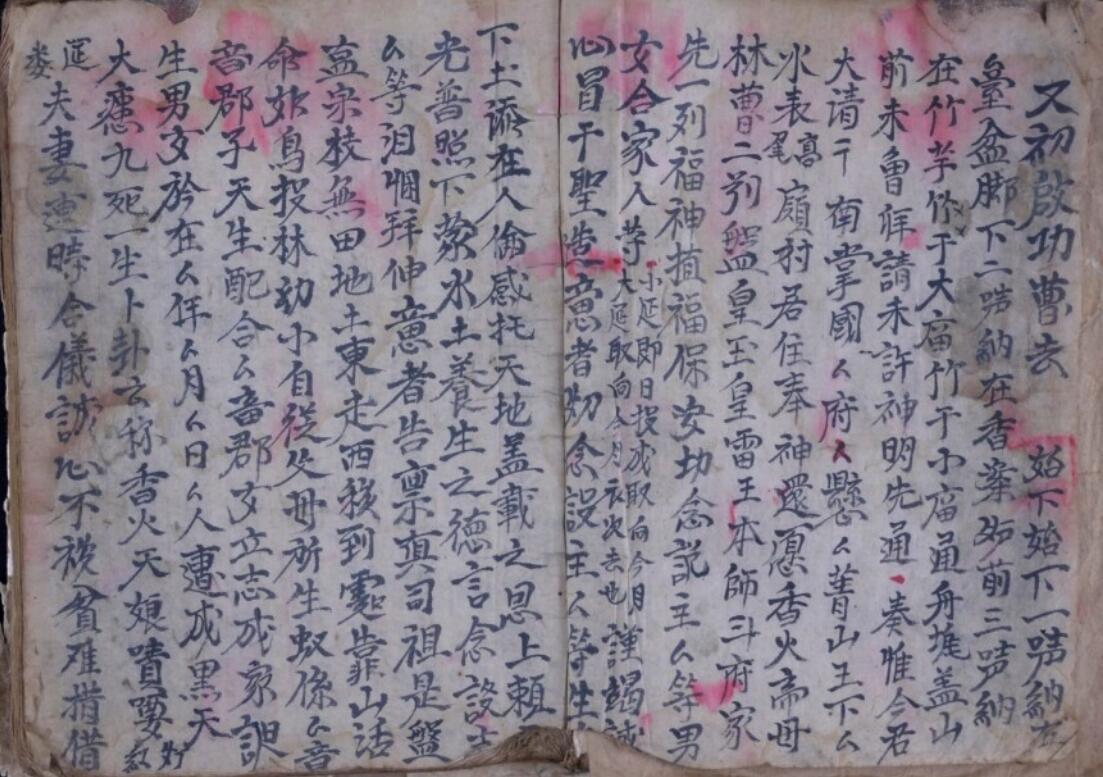 又初啟功曹去 始下始下一哢納在
臺盆脚下二哢納在香案始前三哢納
在竹芋作于大庿竹于小庿通舟堆盖山
前未魯徃請未許神明先通奏惟今君
大清〒南掌國厶府厶懸厶菁山王下厶
水表高尾廟村居住奉神還愿香火斋母
林曹二列盤皇玉皇雷王本師斗府家
先一列福神植福保安切念説主厶等男
女合家人等小延即日投成取向今月大延取向今月衣次去也謹竭誠
心冒干聖造意者切念設主厶等生
下土添在人倫感托天地盖載之恩上頼
光普照下蒙水土養生之德言念設主
厶等泪悃拜伸意者告禀真司祖是盤
盖宗枝無田地土東走西移到處告山活
命如鳥投林幼小自從父母所生奴係厶音
音郡子天生配合厶音郡女立志成家
生男女於在厶年厶月厶日厶人遭成黑天
大㾗九死一生卜卦云称香火天娘嘖要
夫妻連時合儀誠心不誤貧难措借